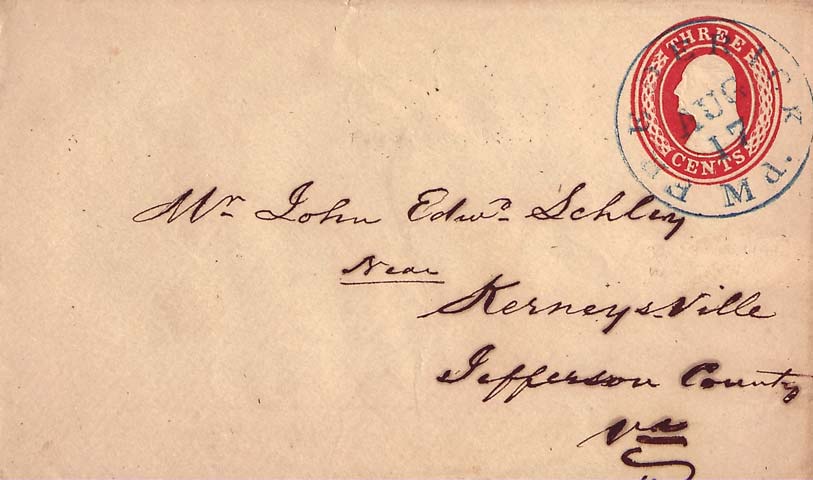 THREE
CENTS
FREDERICK Md.
AUG
17
Mr John Edwd Schley
Near
Kerneys-Ville
Jefferson County
Va